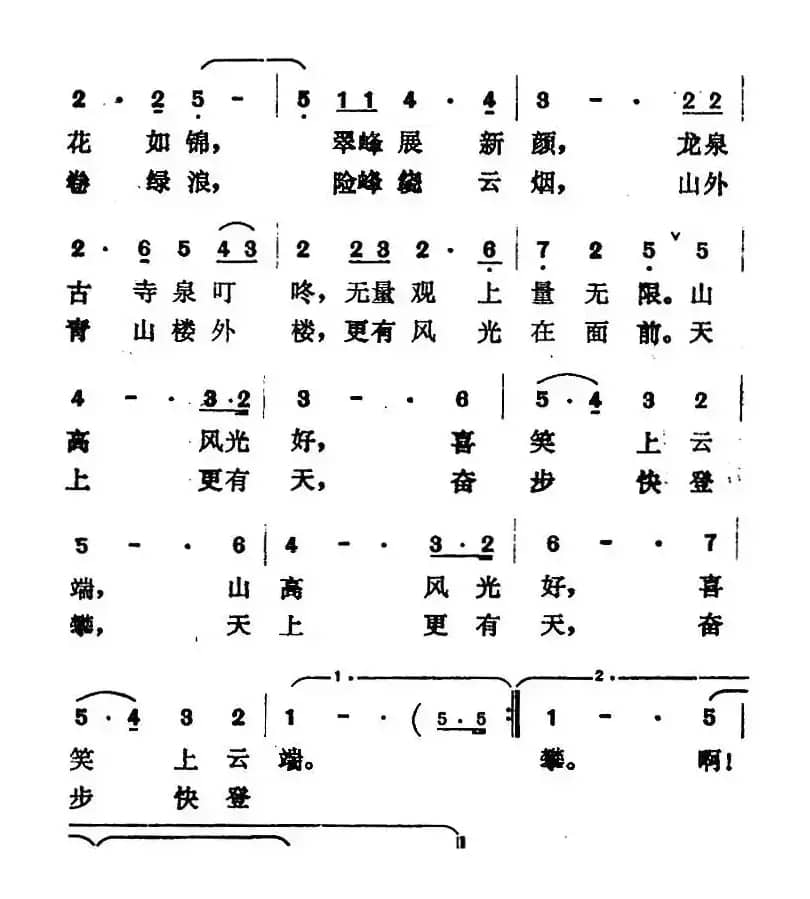 2 · 2 5 - | 5 1 1 4 · 4 | 3 - · 2 2
花 如锦, 翠峰展 新颜, 龙泉
卷 绿浪, 险峰绕 云烟, 山外
2 · 6 5 4 3 | 2 2 3 2 · 6 | 7 2 5 ∨ 5 |
古 寺泉叮 咚,无量观 上量无限。山
青 山楼外 楼,更有风 光在面前。天
4 - · 3 · 2 | 3 - · 6 | 5 · 4 3 2 |
高 风光好, 喜 笑 上云
上 更有天, 奋 步 快登
5 - · 6 | 4 - · 3 · 2 | 6 - · 7 |
端, 山高 风光好, 喜
攀, 天上 更有天, 奋
1. 2.
5 · 4 3 2 | 1 - · ( 5 · 5 :‖ 1 - · 5 |
笑 上云端。 攀。 啊!
步 快登